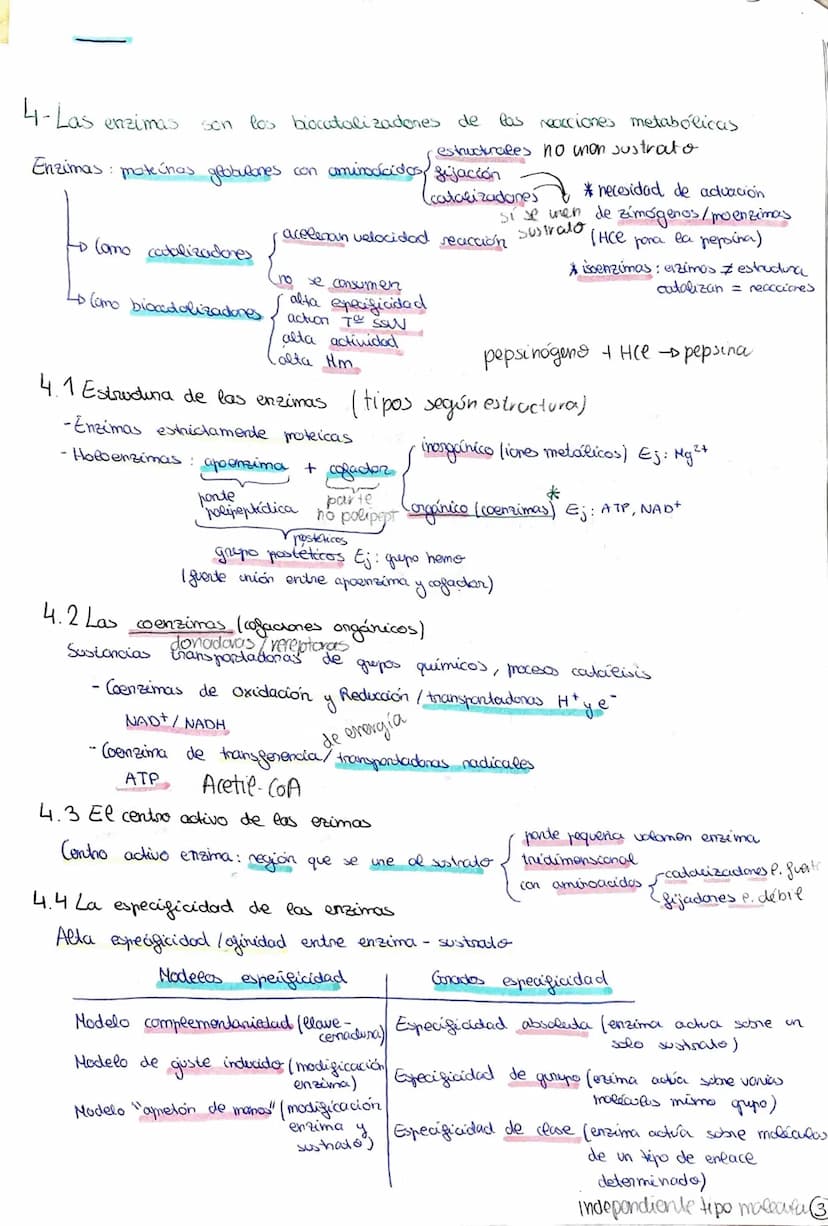 4-Las enzimas son los biocatalizadores de las reacciones metabólicas
Enzimas: proteínas globulares con aminoácidos
estructurales no unen sustrato
fijación
catalizadores
sí se unen sustrato
* necesidad de actuación
de zimógenos/proenzimas
(HCl para la pepsina)
* isoenzimas: enzimas ≠ estructura
catalizan = reacciones
→ Como catalizadores
aceleran velocidad reacción
no se consumen
→ Como biocatalizadores
alta especificidad
action Tª SSVV
alta actividad
alta Mm
pepsinógeno + HCl → pepsina
4.1 Estructura de las enzimas (tipos según estructura)
- Enzimas estrictamente proteicas
- Holoenzimas: apoenzima + cofactor
inorgánico (iones metálicos) Ej: Mg²⁺
orgánico (coenzimas)* Ej: ATP, NAD⁺
parte polipeptídica
parte no polipept
prostéticos
grupo postéticos Ej: grupo hemo
(fuerte unión entre apoenzima y cofactor)
4.2 Las coenzimas (cofactores orgánicos)
donadoras/receptoras
Sustancias transportadoras de grupos químicos, procesos catálisis
- Coenzimas de Oxidación y Reducción / transportadoras H⁺ y e⁻
NAD⁺/NADH
de energía
- Coenzima de transferencia/transportadoras radicales
ATP Acetil-CoA
4.3 El centro activo de las enzimas
Centro activo enzima: región que se une al sustrato
parte pequeña volumen enzima
tridimensional
con aminoácidos
catalizadores e. fuert
fijadores e. débil
4.4 La especificidad de las enzimas
Alta especificidad/afinidad entre enzima - sustrato
Modelos especificidad
Modelo complementariedad (llave-cerradura)
Modelo de ajuste inducido (modificación enzima)
Modelo "apretón de manos" (modificación enzima y sustrato)
Grados especificidad
Especificidad absoluta (enzima actua sobre un
solo sustrato)
Especificidad de grupo (enzima actúa sobre varias
moléculas mismo grupo)
Especificidad de clase (enzima actúa sobre moléculas
de un tipo de enlace
determinado)
independiente tipo molécula
3